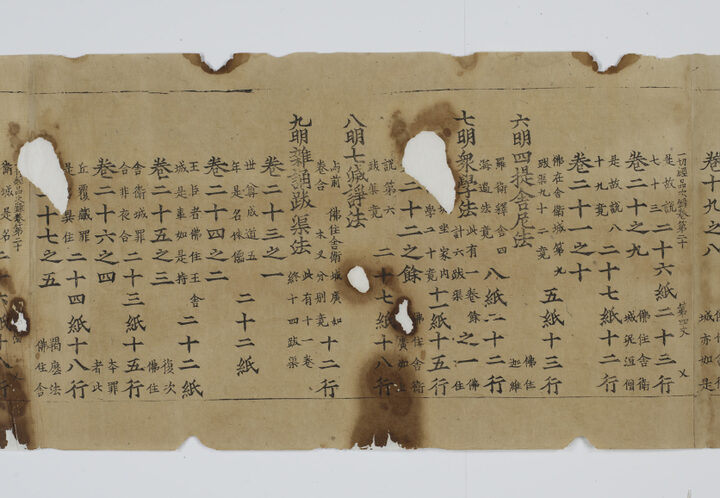 十九之八
城亦如是
一切經品次錄卷第二十 第四丈 乂
是故說
七十三
二十六紙二十三行
卷二十之九
佛住舍衛
城況洹僧
是故說八
十九竟
二十七紙十二行
卷二十一之十
佛在舍衛城第九
跋渠九十二竟
五紙十三行
六明四提舍尼法
佛住
迦維
羅衛釋舍四
海過法竟
八紙二十二行
七明衆學法
計六跋渠
此有一卷餘之一
佛
住
家內
學二十竟
十二紙十五行
二十二之餘
佛住舍衛
廣如上
說第六
跋渠竟
二十七紙十八行
八明七滅諍法
如前
卷合
佛住舍衛城廣如
本又分別竟
十二行
九明雜誦跋渠法
此有十一卷
終十四跋渠
卷二十三之一
世尊成道五
年是名侏儒
二十二紙
卷二十四之二
王臣者佛住王舍
城是盡如是持
二十二紙
卷二十五之三
復次
佛住
舍衛城罪
合非衣合竟
二十三紙十五行
卷二十六之四
本罪
者比
丘覆藏罪
二十四紙十八行
二十七之五
羯磨法
佛住舍
品次錄卷第二十
衛城是名
二十六紙十八行